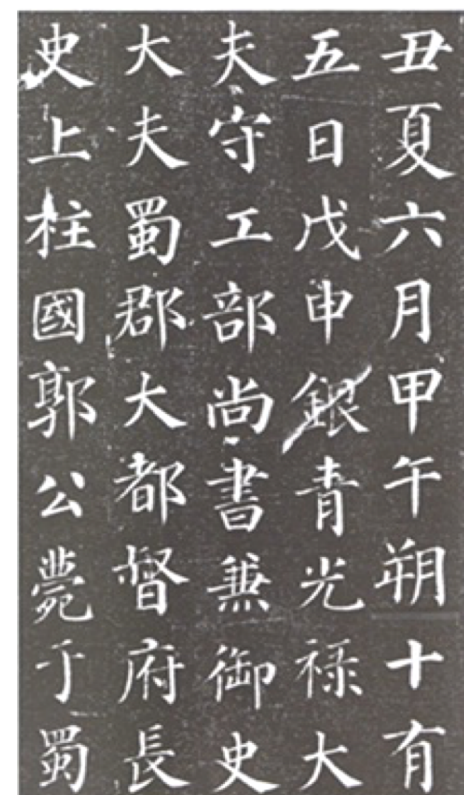 丑夏六月甲午朔十有
五日戊申銀青光禄大
夫守工部尚書兼御史
大夫蜀郡大都督府長
史上柱國郭公薨于蜀